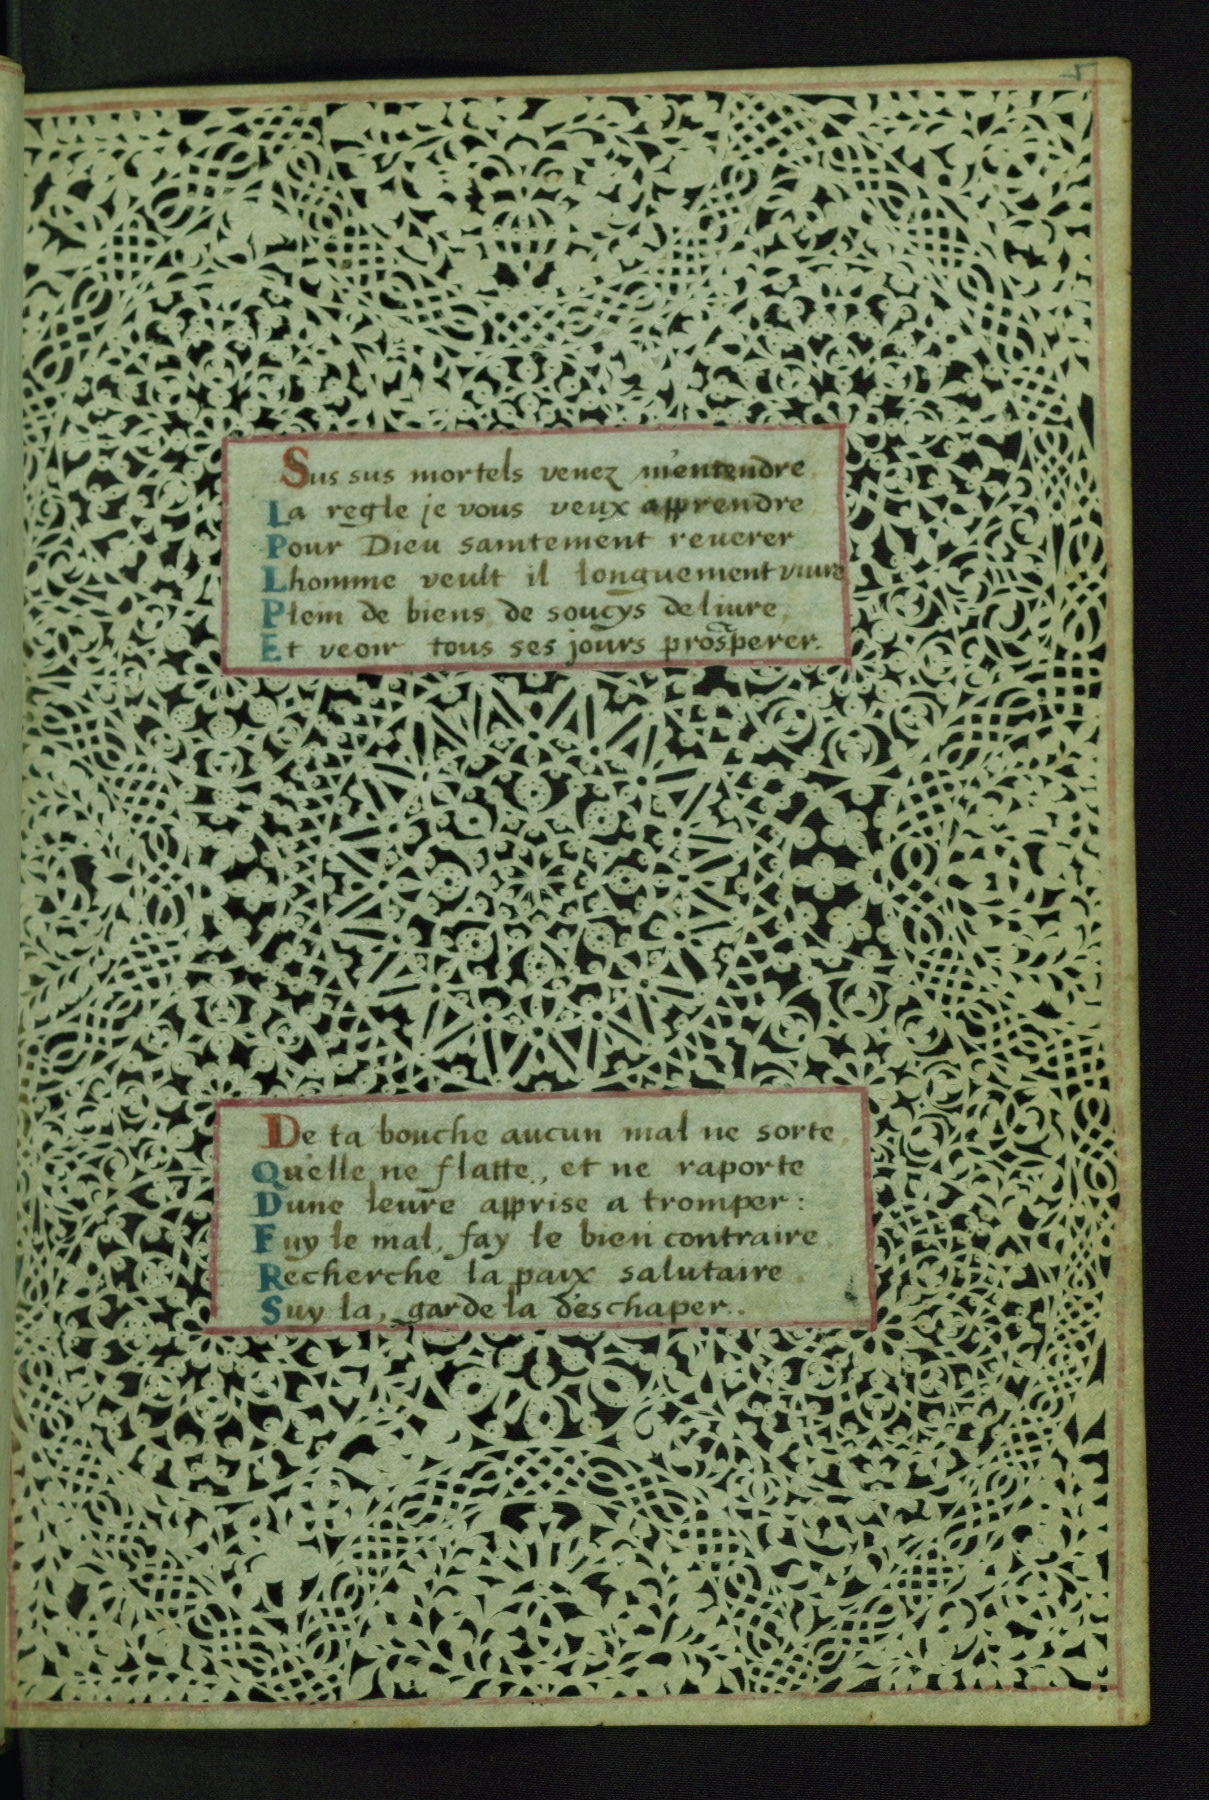 Sus sus mortels venez m'entendre
La regle je vous veux apprendre
Pour Dieu saintement reuerer
Lhomme veult il longuement viure
Plein de biens, de soucys deliure,
Et veoir tous ses jours prosperer.
De ta bouche aucun mal ne sorte,
Qu'elle ne flatte, et ne raporte
Dune leure apprise a tromper:
Fuy le mal, fay le bien contraire
Recherche la paix salutaire
Suy la, garde la d'eschaper.